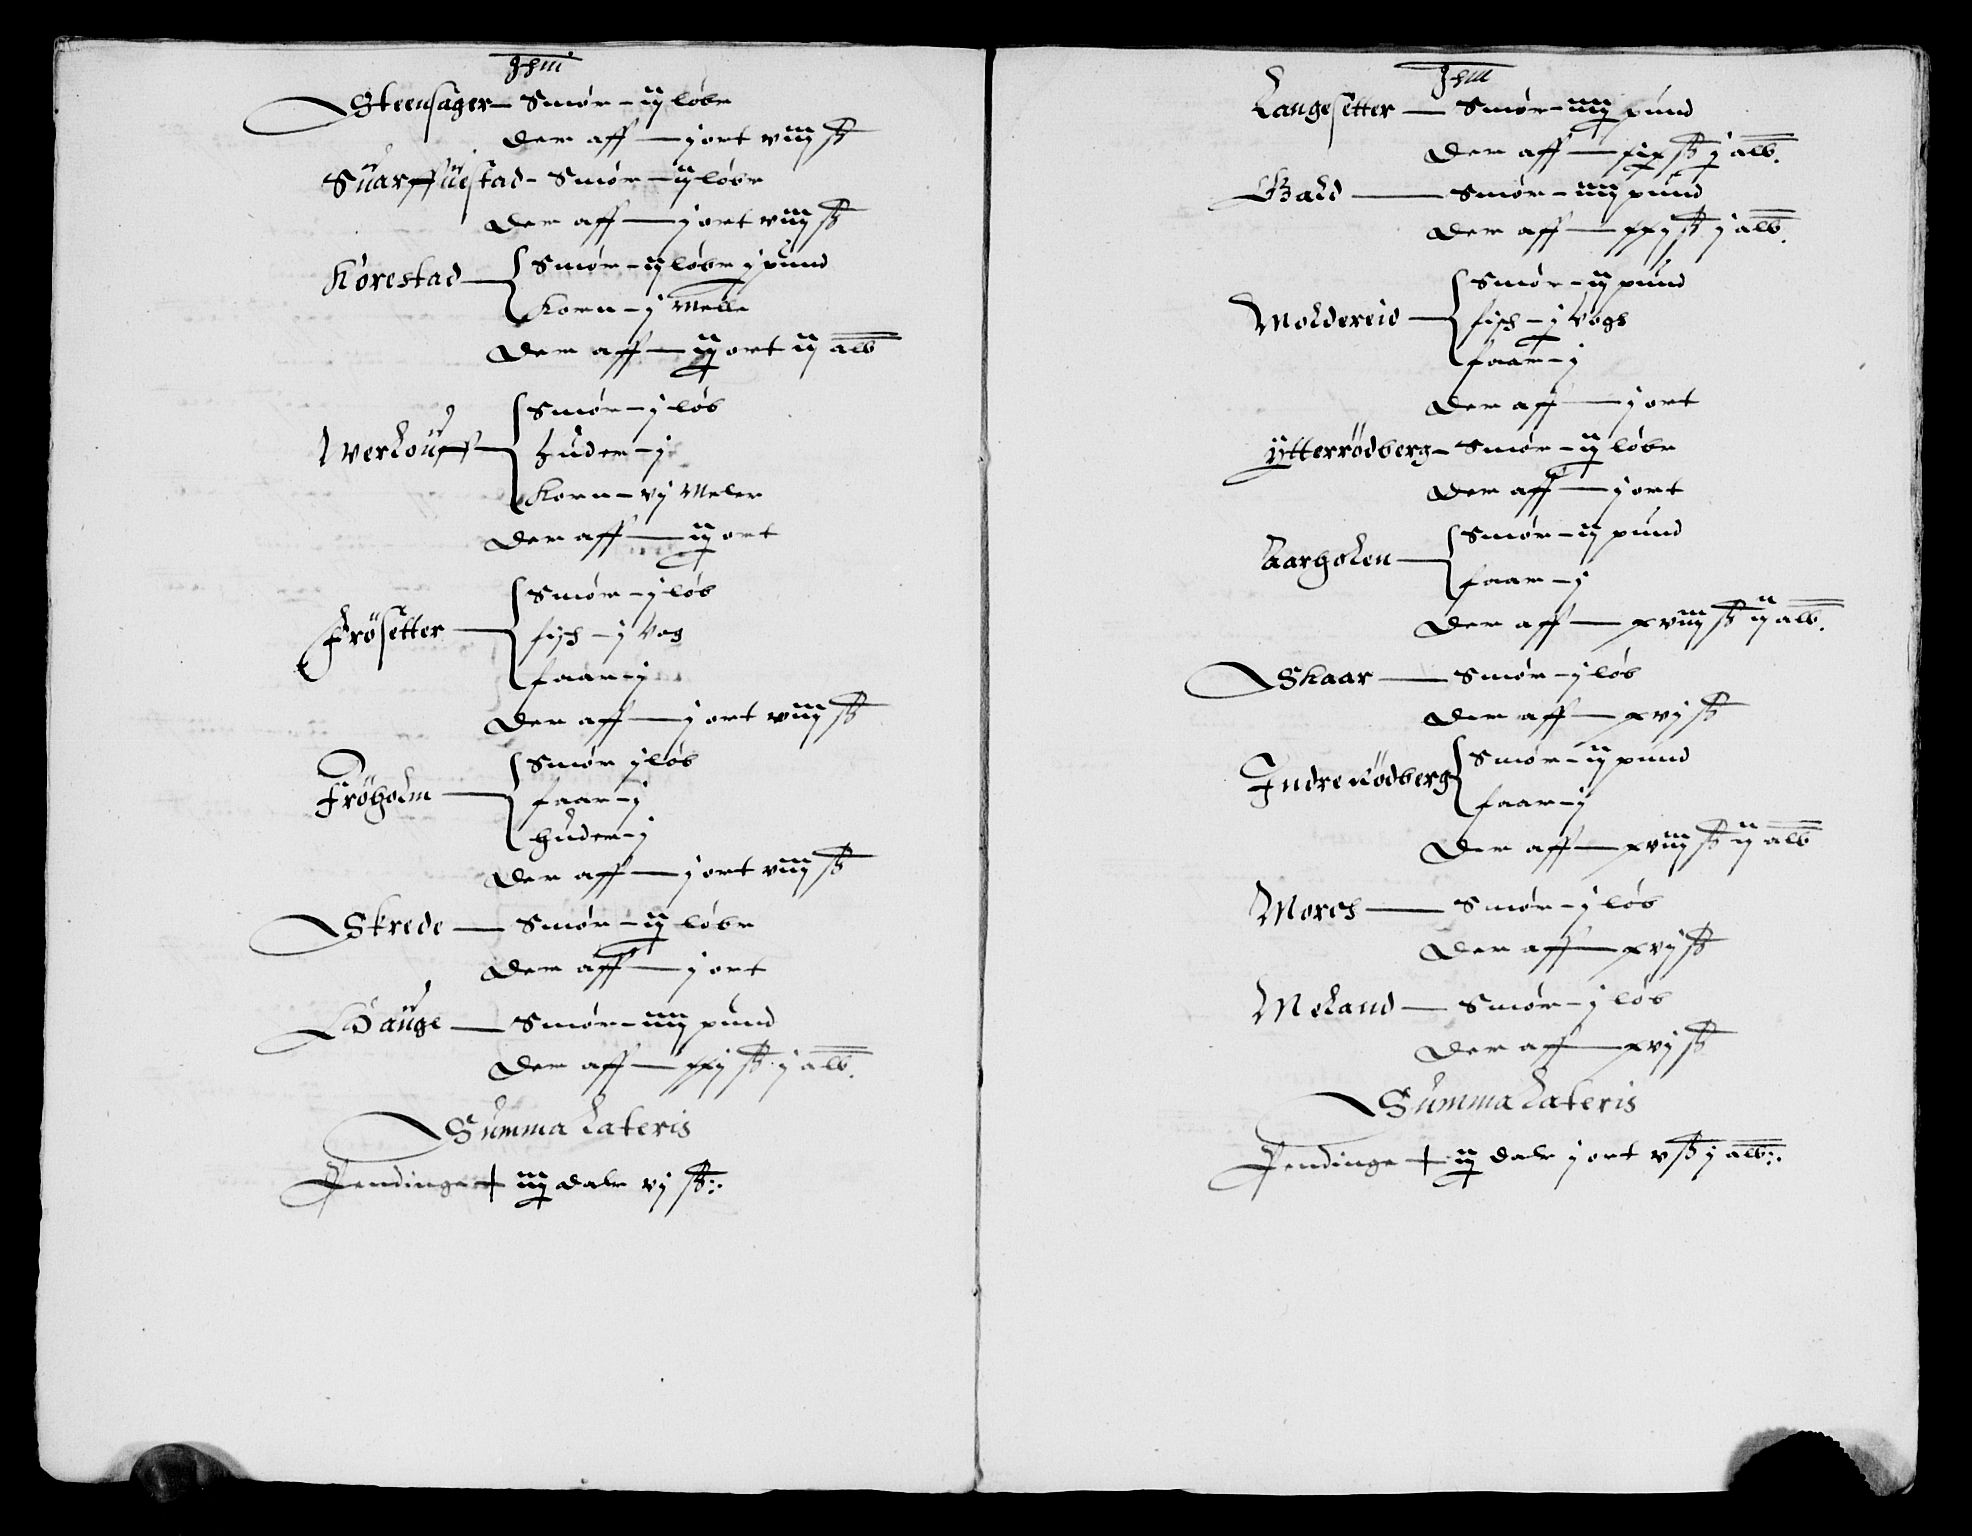 Jhm
Steensager – Smør – ij løbe
Der aff — j ort viij ß
Suarffuestad – Smør – ij løbe
Der aff — j ort viij ß
Korestad — Smør – ij løbe j pund
Korn – j Melle
Der aff — iij ort ij alb
Smør – j løb
Huder – j
Korn – vj Meler
Der aff — iij ort
Frösetter — Smør – j løb
fisch – j Vog
faar – j
Der aff — j ort viij ß
Fröholm — Smør j løb
faar – j
Huder – j
Der aff — j ort viij ß
Skrede — Smør – ij løbe
Der aff — j ort
Hauge — Smør – iiij pund
Der aff — xxj ß j alb.
Summa Lateris
Pendinge – iiij dalr vj ß
Jhm
Langesetter — Smør – iiij pund
Der aff — xxj ß j alb.
Bald — Smør – iiij pund
Der aff — xxj ß j alb.
Moldereid — Smør – ij pund
fisch – j Vogh
faar – j
Der aff — j ort
Ytterrödberg – Smør – ij løbe
Der aff — j ort
Aarholen — Smør – ij pund
faar – j
Der aff — xviij ß ij alb.
Skaar — Smør – j løb
Der aff — xvj ß
Indre Rödberg Smør – ij pund
faar – j
Der aff — xviij ß ij alb
Mores — Smør – j løb
Der aff — xvj ß
Meland — Smør – j løb
Der aff — xvj ß
Summa Lateris
Pendinge – iij dalr j ort v ß j alb